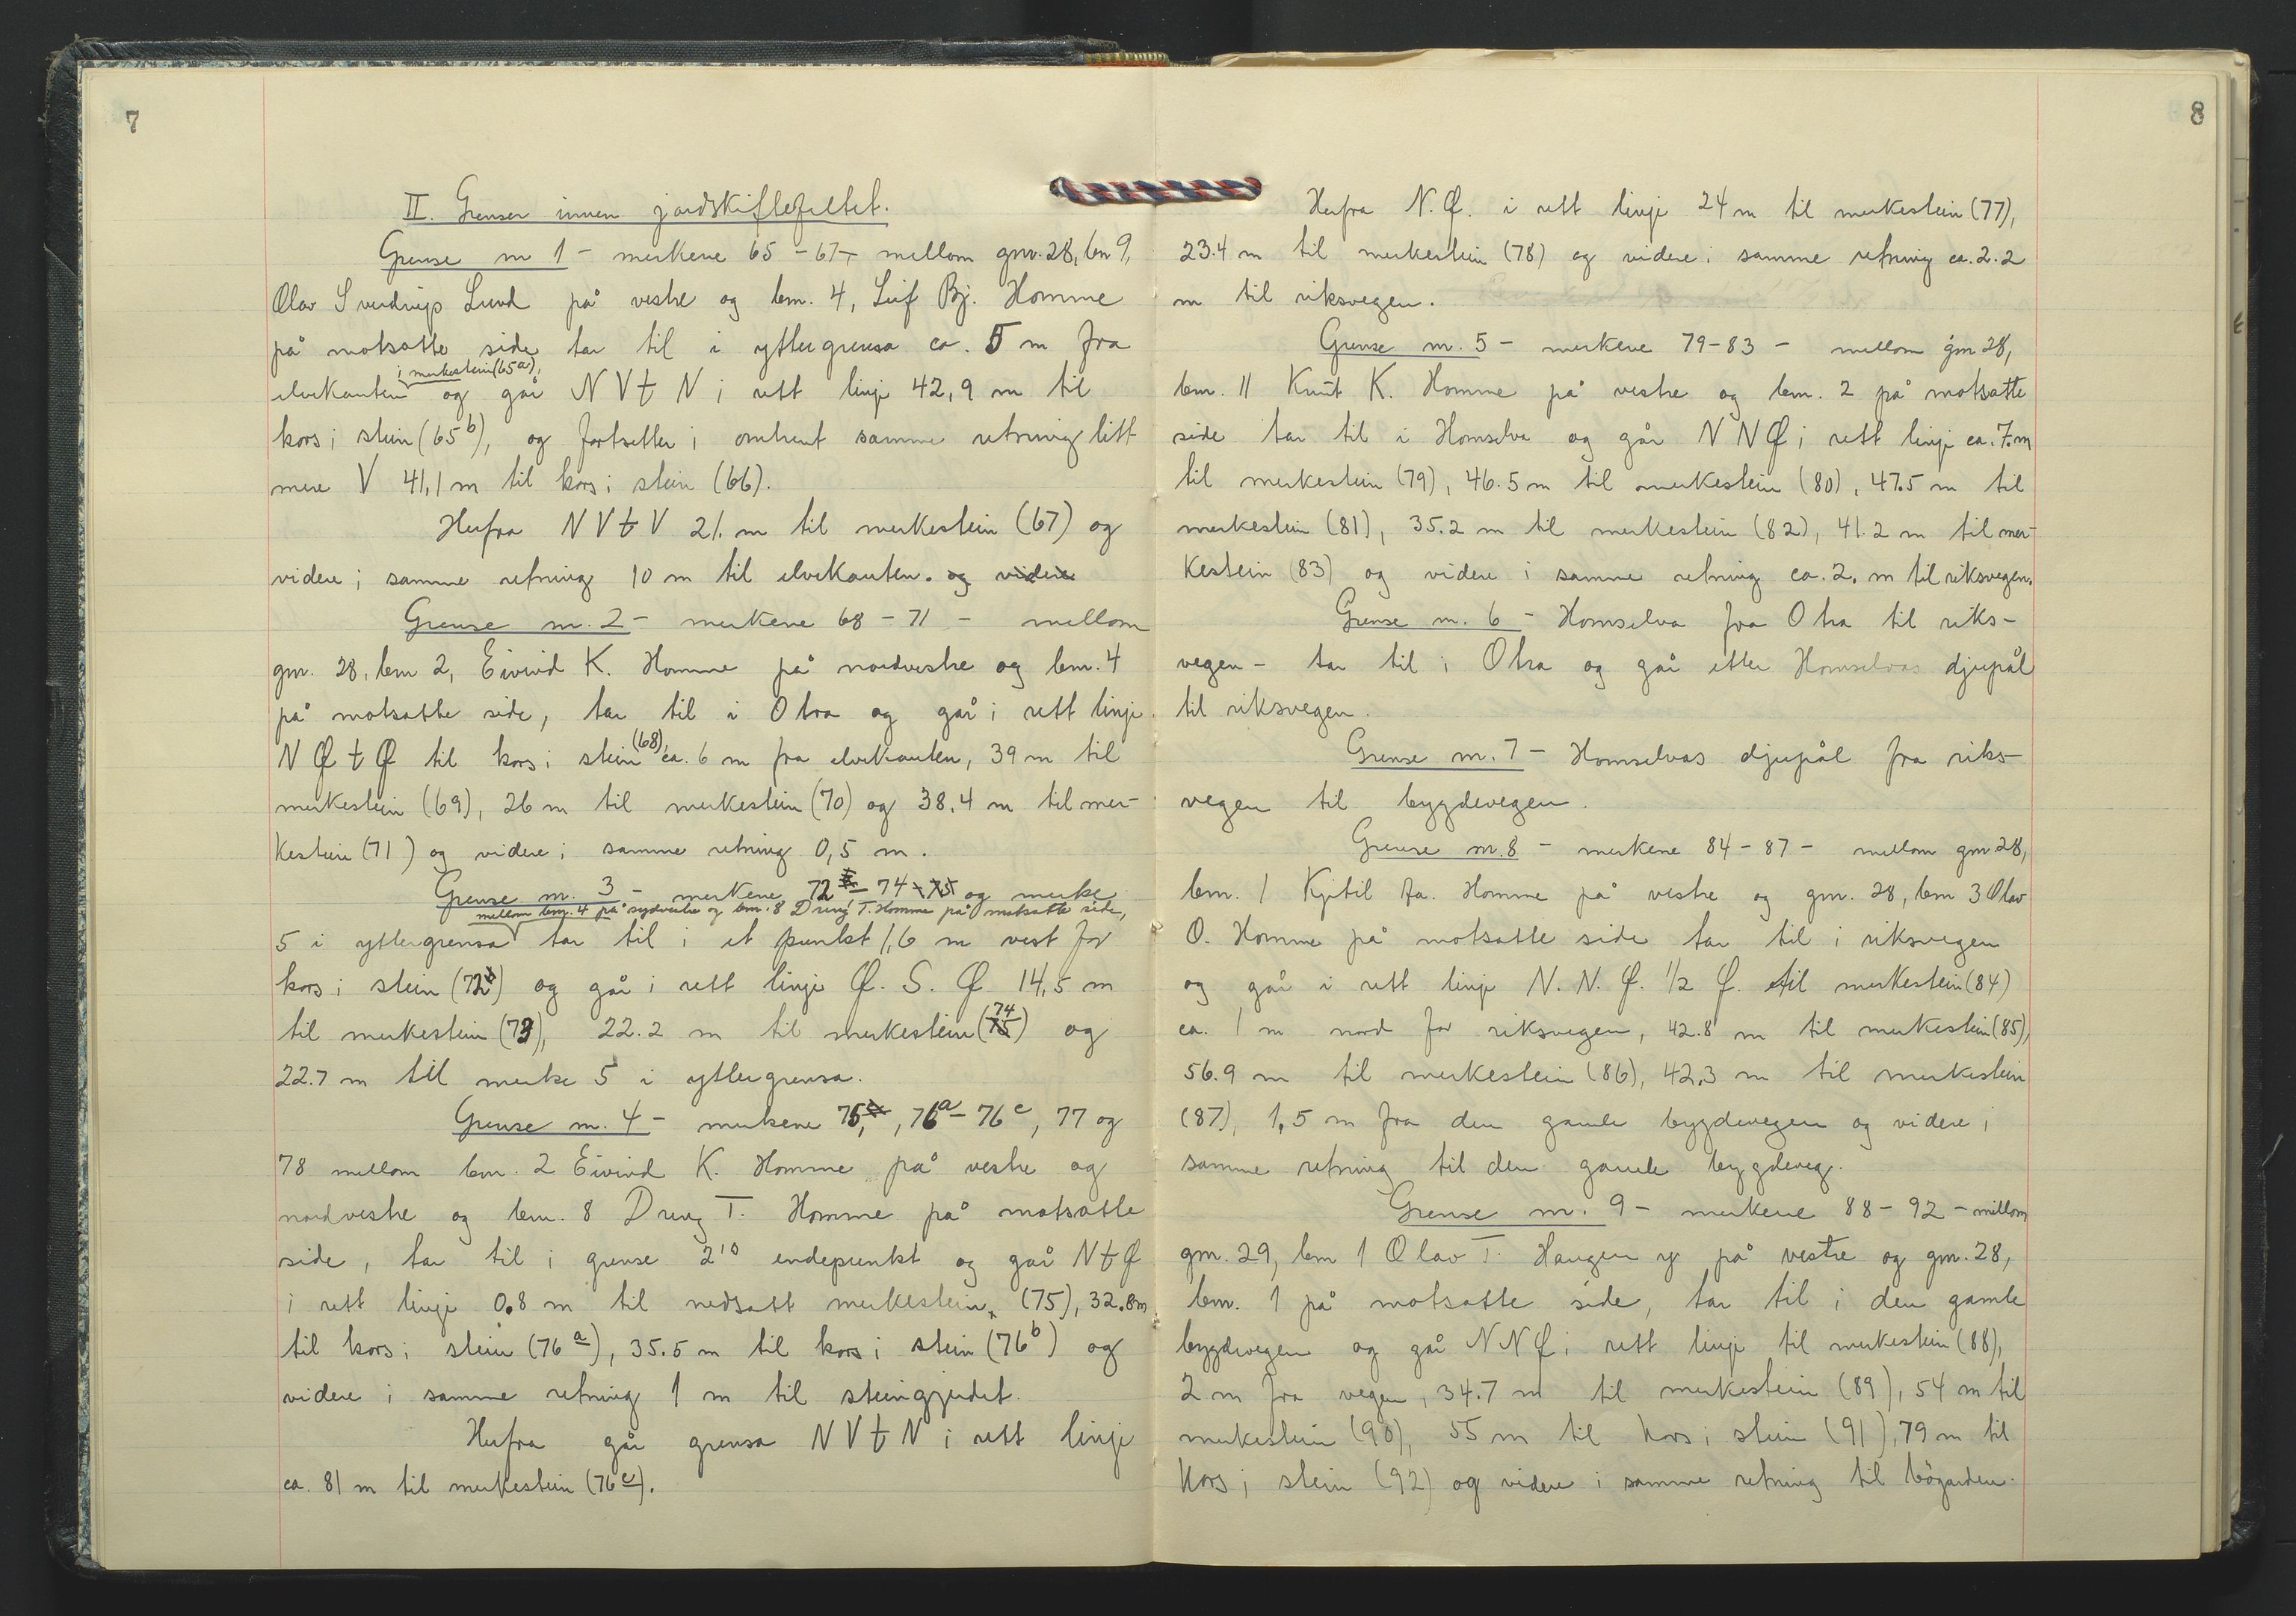 7
II. Grenser innen jordskiftefeltet.
Grense nr 1 - merkene 65 - 67 - mellom gnr. 28, bnr 9,
Olav Sverdrups Lund på vestre og bnr. 4, Leif Bj. Homme
på motsatte side tar til i yttergrensa ca. 5 m fra
i merkestein (65a),
elvekanten og går NVtN i rett linje 42,9 m til
kors i stein (65b), og fortsetter i omtrent samme retning litt
mere V 41,1 m til kors i stein (66).
Herfra NVtV 21. m til merkestein (67) og
videre i samme retning 10 m til elvekanten. og videre
Grense nr. 2 - merkene 68 - 71 - mellom
gnr. 28, bnr 2, Eivind K. Homme på nordvestre og bnr. 4
på motsatte side, tar til i Otra og går i rett linje
NØtØ til kors i stein (68), ca. 6 m fra elvekanten, 39 m til
merkestein (69), 26 m til merkestein (70) og 38,4 m til mer-
kestein (71) og videre i samme retning 0,5 m.
Grense nr. 3 - merkene 72 - 74 - 75 og merke
mellom bnr. 4 på sydvestre og bnr. 8 Dreng T. Homme på motsatte side,
5 i yttergrensa tar til i et punkt 1,6 m vest for
kors i stein (72) og går i rett linje Ø. S. Ø 14,5 m
til merkestein (73), 22.2 m til merkestein (75) 74 og
22.7 m til merke 5 i yttergrensa.
Grense nr. 4 - merkene 75, 76a - 76c, 77 og
78 mellom bnr. 2 Eivind K. Homme på vestre og
nordvestre og bnr. 8 Dreng T. Homme på motsatte
side, tar til i grense 2's endepunkt og går NtØ
i rett linje 0.8 m til nedsatt merkestein (75), 32.8 m
til kors i stein (76a), 35.5 m til kors i stein (76b) og
videre i samme retning 1 m til steingjerdet.
Herfra går grensa NVtN i rett linje
ca. 81 m til merkestein (76c).
8
Herfra N.Ø. i rett linje 24 m til merkestein (77),
23.4 m til merkestein (78) og videre i samme retning ca. 2.2
m til riksvegen.
Grense nr. 5 - merkene 79-83 - mellom gnr 28,
bnr. 11 Knut K. Homme på vestre og bnr. 2 på motsatte
side tar til i Homselva og går NNØ i rett linje ca. 7. m
til merkestein (79), 46.5 m til merkestein (80), 47.5 m til
merkestein (81), 35.2 m til merkestein (82), 41.2 m til mer-
kestein (83) og videre i samme retning ca. 2. m til riksvegen.
Grense nr. 6 - Homselva fra Otra til riks-
vegen - tar til i Otra og går etter Homselvas djupål
til riksvegen.
Grense nr. 7 - Homselvas djupål fra riks-
vegen til bygdevegen.
Grense nr. 8 - merkene 84 - 87 - mellom gnr 28,
bnr. 1 Kjetil Aa. Homme på vestre og gnr. 28, bnr 3 Olav
O. Homme på motsatte side tar til i riksvegen
og går i rett linje N. N. Ø. 1/2 Ø. til merkestein (84)
ca. 1 m nord for riksvegen, 42.8 m til merkestein (85),
56.9 m til merkestein (86), 42.3 m til merkestein
(87), 1.5 m fra den gamle bygdevegen og videre i
samme retning til den gamle bygdeveg.
Grense nr. 9 - merkene 88 - 92 - mellom
gnr. 29, bnr 1 Olav T. Haugen yr på vestre og gnr. 28,
bnr. 1 på motsatte side, tar til i den gamle
bygdevegen og går NNØ i rett linje til merkestein (88),
2 m fra vegen, 34.7 m til merkestein (89), 54 m til
merkestein (90), 55 m til kors i stein (91), 79 m til
kors i stein (92) og videre i samme retning til bögarden.